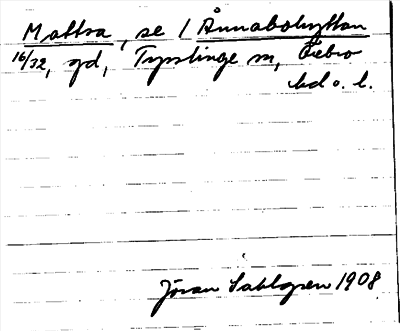 Mattsa, se / Annabohyttan
16/32, gd, Tysslinge sn, Örebro
hd o. l.
Jöran Sahlgren 1908